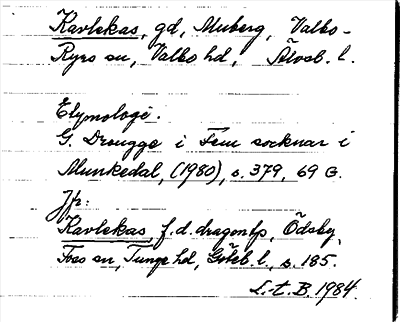 Kavlekas, gd, Muberg, Valbo-
Ryrs sn, Valbo hd, Älvsb. l.
Etymologi.
G. Drougge i Fem socknar i
Munkedal, (1980), s. 379, 69 G.
Jfr:
Kavlekas, f.d. dragontp, Ödsby,
Foss sn, Tunge hd, Göteb. l., s. 185.
L.t.B. 1984.